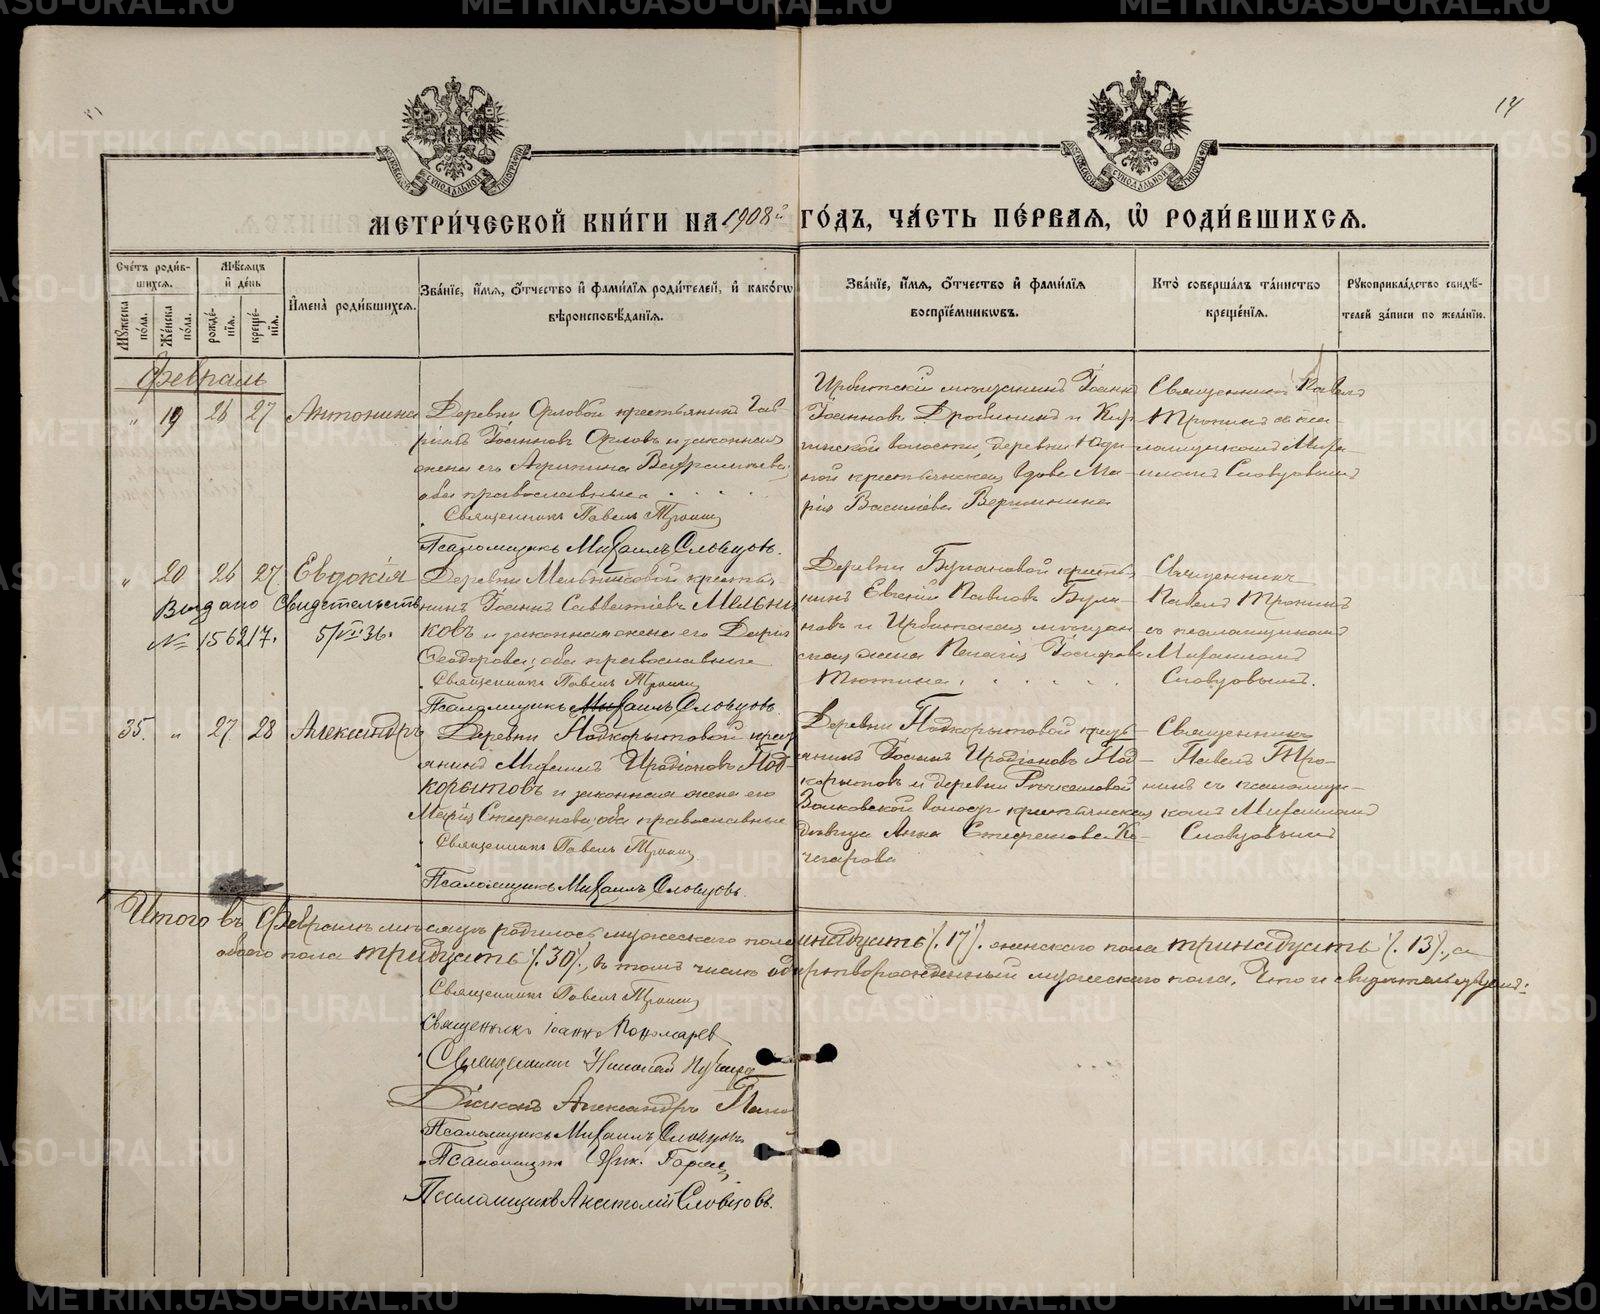 14
МЕТРИ́ЧЕСКОЙ КНИ́ГИ НА 1908й ГО́ДЪ, ЧА́СТЬ ПЕ́РВАЯ, Ѡ҆ РОДИ́ВШИХСѦ.
Сче́тъ роди́вшихсѧ.
Мꙋ́жеска по́ла.
Же́нска по́ла.
Мѣ́сѧцъ и҆ де́нь
рожде́нїѧ.
креще́нїѧ.
И҆мена̀ роди́вшихсѧ.
Зва́нїе, и҆́мѧ, ѻ҆́тчество и҆ фами́лїѧ роди́телей, и҆ како́гѡ
вѣроисповѣ́данїѧ.
Зва́нїе, и҆́мѧ, ѻ҆́тчество и҆ фами́лїѧ
воспрїе́мникѡвъ.
Кто̀ соверша́лъ та́инство
креще́нїѧ.
Рꙋкоприкла́дство свидѣ́-
телей за́писи по жела́нїю.
Февраль
" 19 26 27 Антонина
Деревни Орловой крестьянинъ Гав-
рiилъ Iоанновъ Орловъ и законная
жена его Агрипина
оба православные
Священникъ Павелъ Тронинъ
Псаломщикъ Михаилъ Словцовъ.
Ирбитскiй мѣщанинъ Iоаннъ
Iоанновъ Дробининъ и Кир-
гинской волости, деревни Юди-
ной крестьянская вдова Ма-
рiя Василiева
Священникъ Павелъ
Тронинъ съ пса-
ломщикомъ Миха-
иломъ Словцовымъ
" 20 26 27 Евдокiя
Выдано Свидетельство
№ 156217. 5/VII 36.
Деревни Мельниковой крестья-
нинъ Iоаннъ Савватiевъ Мельни
ковъ и законная жена его Дарiя
Ѳеодорова; оба православные
Священникъ Павелъ Тронинъ
Псаломщикъ Михаилъ Словцовъ.
Деревни Булановой крестья-
нинъ Евгенiй Павловъ Була-
новъ и Ирбитская мѣщан-
ская жена Пелагiя Iосифова
Тютина.
Священникъ
Павелъ Тронинъ
съ псаломщикомъ
Михаиломъ
Словцовымъ.
35. " 27 28 Александръ
Деревни Подкорытовой крест
янинъ Михаилъ Иродiоновъ Под-
корытовъ и законная жена его
Марiя Стефанова; оба православные
Священникъ Павелъ Тронинъ
Псаломщикъ Михаилъ Словцовъ.
Деревни Подкорытовой крест-
янинъ Iоаннъ Иродiоновъ Под-
корытовъ и деревни Речкаловой
Волковской волости крестьянская
дѣвица Анна Стефанова Ко-
чегарова
Священникъ
Павелъ Тро-
нинъ съ псаломщи-
комъ Михаиломъ
Словцовымъ
Итого въ Февралѣ мѣсяцѣ родилось мужескаго пола семнадцать /.17/. женскаго пола тринадцать /.13/., а
обоего пола тридцать /.30/., въ томъ числѣ од. мертворожденный мужескаго пола. Что и свидѣтельствуемъ:
Священникъ Павелъ Тронинъ
Священникъ Iоаннъ Пономарев
Священникъ Николай
Дiаконъ Александръ
Псаломщикъ Михаилъ Словцовъ
Псаломщикъ Ник.
Псаломщикъ Анатолiй Словцовъ.
METRIKI.GASO-URAL.RU